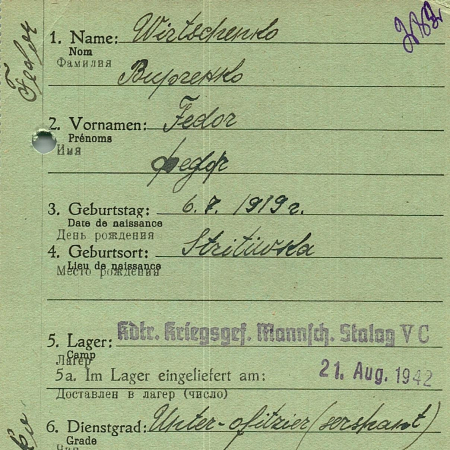 Fedor
1. Name: Wirtschenko
Nom
Фамилия
2. Vornamen: Fedor
Prénoms
Имя
Федор
3. Geburtstag: 6. 7. 1919 г.
Date de naissance
День рождения
4. Geburtsort: Stritiwska
Lieu de naissance
Место рождения
5. Lager: Kdtr. Kriegsgef. Mannsch. Stalag V C
Camp
Лагерь
5a. Im Lager eingeliefert am: 21. Aug. 1942
Доставлен в лагерь (число)
6. Dienstgrad: Unter-ofitzier (sershant)
Grade